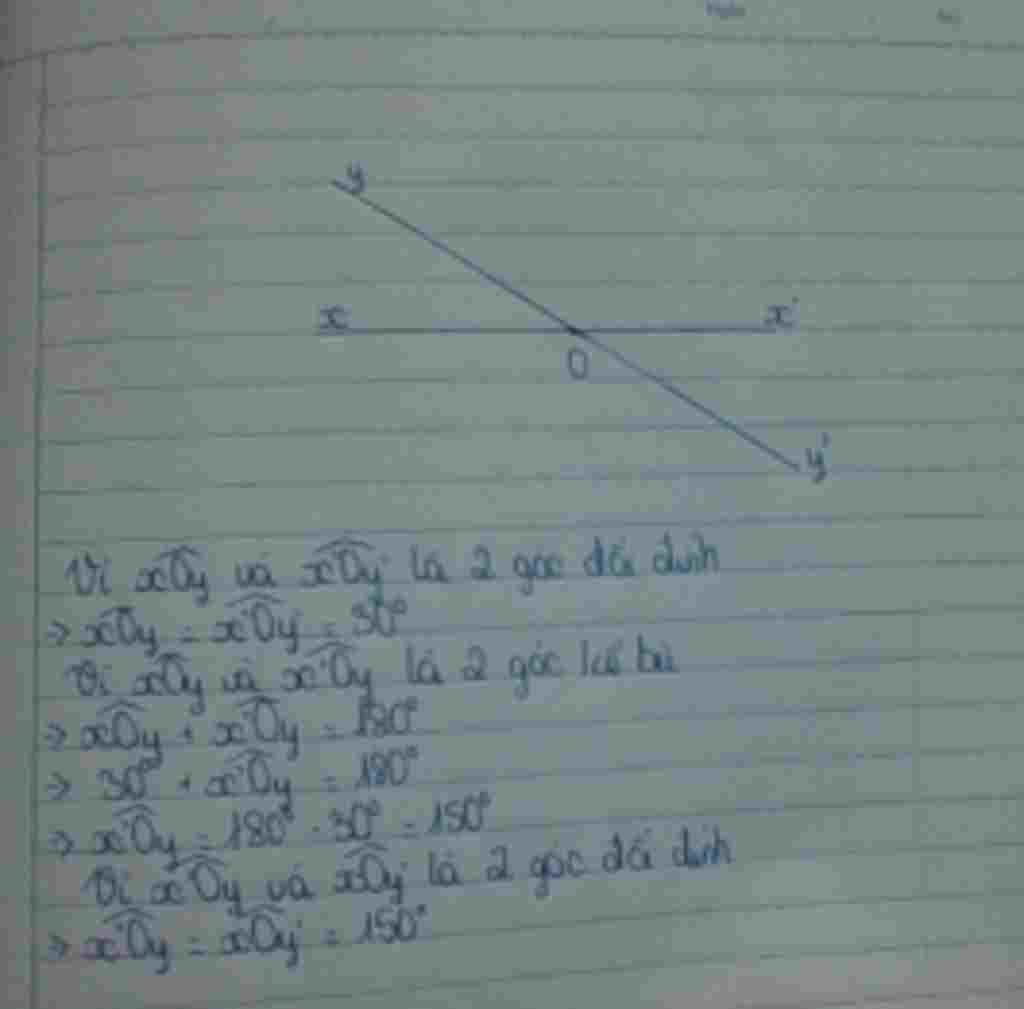 y
x
x'
O
y'
Vì xOy và x'Oy' là 2 góc đối đỉnh
=> xOy = x'Oy' = 30°
Vì xOy và x'Oy là 2 góc kề bù
=> xOy + x'Oy = 180°
=> 30° + x'Oy = 180°
=> x'Oy = 180° - 30° = 150°
Vì x'Oy và xOy' là 2 góc đối đỉnh
=> x'Oy = xOy' = 150°